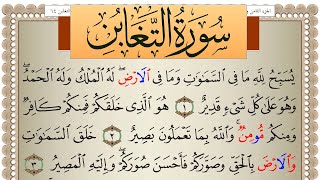 سُورَةُ التَّغَابُنِ
يُسَبِّحُ لِلَّهِ مَا فِي السَّمَوَاتِ وَمَا فِي الْاَرْضِ لَهُ الْمُلْكُ وَلَهُ الْحَمْدُ
وَهُوَ عَلَى كُلِّ شَيْءٍ قَدِيرٌ ١ هُوَ الَّذِي خَلَقَكُمْ فَمِنْكُمْ كَافِرٌ
وَمِنْكُمْ مُؤْمِنٌ وَاللَّهُ بِمَا تَعْمَلُونَ بَصِيرٌ ٢ خَلَقَ السَّمَوَاتِ
وَالْاَرْضَ بِالْحَقِّ وَصَوَّرَكُمْ فَاَحْسَنَ صُوَرَكُمْ وَاِلَيْهِ الْمَصِيرُ ٣